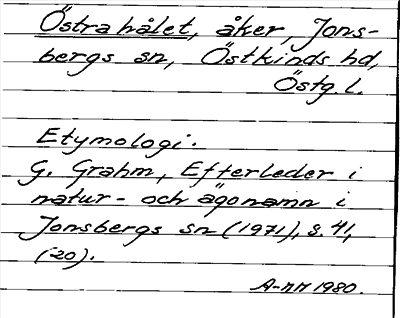 Östra hålet, åker, Jons-
bergs sn, Östkinds hd,
Östg. l.
Etymologi.
G. Grahm, Efterleder i
natur- och ägonamn i
Jonsbergs sn (1971), s. 41,
(20).
A-NM 1980.